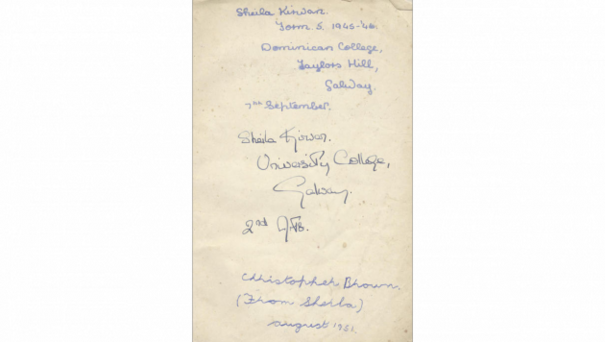 Sheila Kirwan.
Form 5. 1945-46.
Dominican College,
Taylors Hill,
Galway.
7th September.
Sheila Kirwan.
University College,
Galway.
2nd Arts.
Christopher Brown.
(From Sheila)
August 1951.